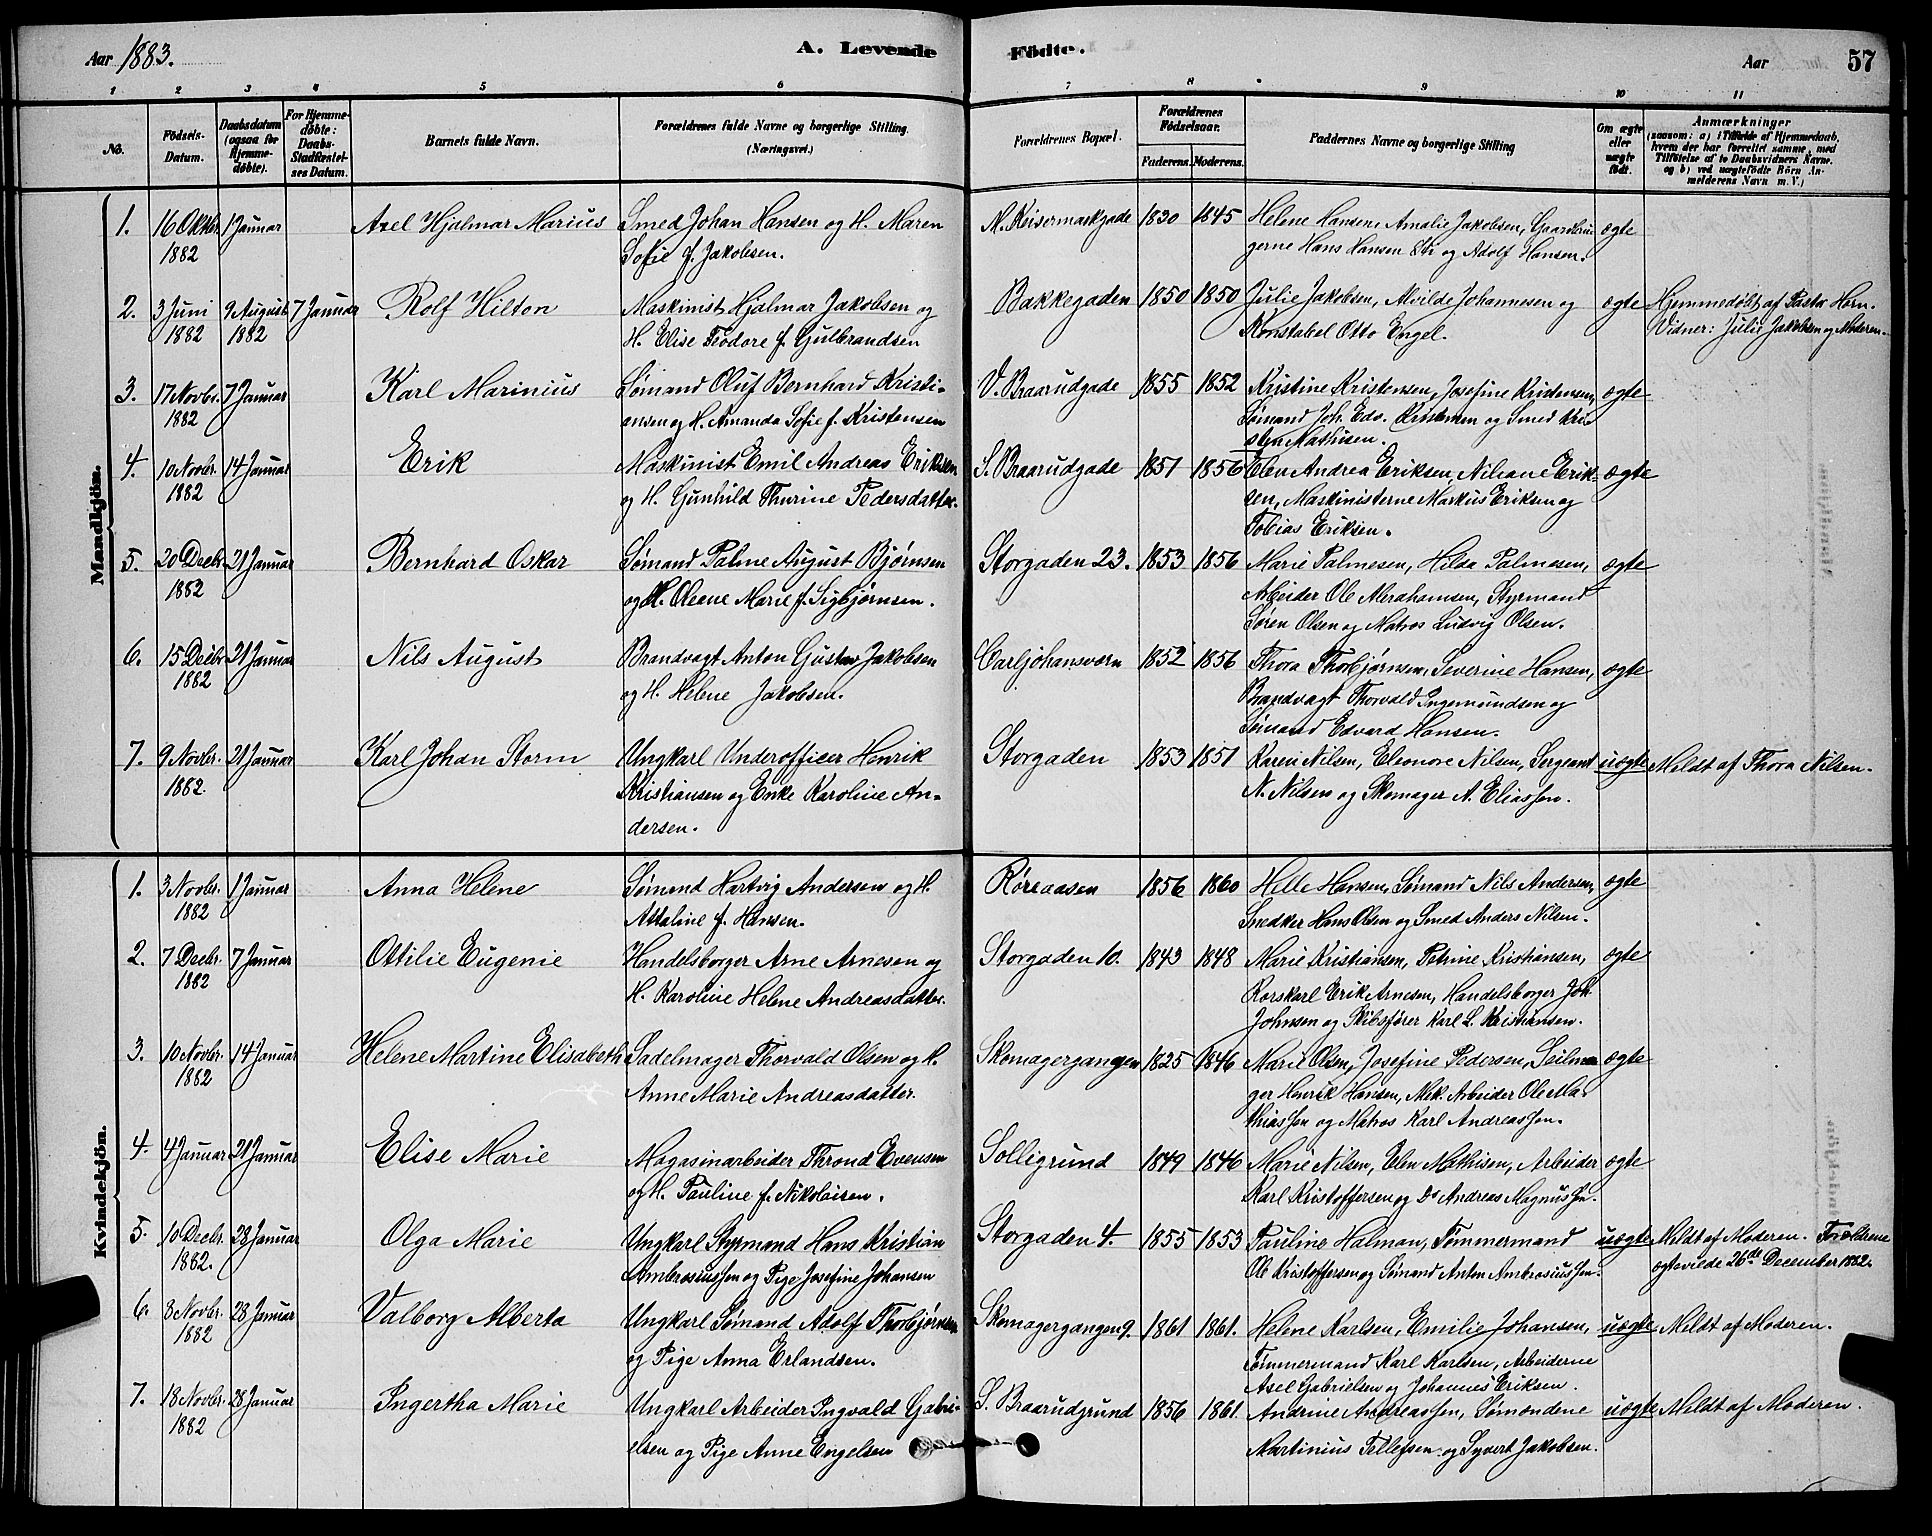 Aar 1883.
A. Levende
Födte.
Aar
57
1 2 3 4 5 6 7 8 9 10 11
No.
Födsels-
Datum.
Daabsdatum
(ogsaa for
Hjemme-
döbte).
For Hjemme-
döbte:
Daabs-
Stadfæstel-
ses Datum.
Barnets fulde Navn.
Forældrenes fulde Navne og borgerlige Stilling.
(Næringsvei.)
Forældrenes Bopæl.
Forældrenes
Födselsaar.
Faderens. Moderens.
Faddernes Navne og borgerlige Stilling
Om ægte
eller
uægte
födt.
Anmærkninger
(saasom: a) i Tilfælde af Hjemmedaab,
hvem der har forrettet samme, med
Tilföielse af to Daabsvidners Navne.
og b) ved uægtefödte Börn An-
melderens Navn m. V.)
Mandkjön.
1. 16 Oktbr. 1882 1 Januar Axel Hjalmar Marius Smed Johan Hansen og H. Maren
Sofie f. Jakobsen.
N. Keisermarkgade 1830 1845 Helene Hansen, Amalie Jakobsen, Gaardbru-
gerne Hans Hansen og Adolf Hansen. ægte
2. 3 Juni 1882 9 August 1882 7 Januar Rolf Hilton Maskinist Hjalmar Jakobsen og
H. Elise Teodore f. Gulbrandsen
Bakkegaden 1850 1850 Julie Jakobsen, Alvilde Johannesen og
Konstabel Otto Engel. ægte Hjemmedøbt af Pastor Horn.
Vidner: Julie Jakobsen og Moderen.
3. 17 Novbr. 1882 7 Januar Karl Marinius Sømand Oluf Bernhard Kristi-
ansen og H. Amanda Sofie f. Kristensen
V. Braarudgade 1855 1852 Kristine Kristensen, Josefine Kristensen,
Sømand Joh. Edv. Kristensen og Smed Kri-
sten Mathisen. ægte
4. 10 Novbr. 1882 14 Januar Erik Maskinist Emil Andreas Eriksen
og H. Gunhild Thurine Pedersdatter.
S. Braarudgade 1851 1856 Elen Andrea Eriksen, Niliane Erik-
sen, Maskinisterne Markus Eriksen og
Tobias Eriksen. ægte
5. 20 Decbr. 1882 21 Januar Bernhard Oskar Sømand Palme August Bjørnsen
og H. Oleane Marie f. Sigbjørnsen.
Storgaden 23. 1853 1856 Marie Palmesen, Hilda Palmesen,
Arbeider Ole Abrahamsen, Styrmand
Søren Olsen og Matros Ludvig Olsen. ægte
6. 15 Decbr. 1882 21 Januar Nils August Brandvagt Anton Gustav Jakobsen
og H. Helene Jakobsen.
Carljohansværn 1852 1856 Thora Thorbjørnsen, Severine Hansen,
Brandvagt Thorvald Ingemundsen og
Sømand Edvard Hansen. ægte
7. 9 Novbr. 1882 21 Januar Karl Johan Storm Ungkarl Underofficer Henrik
Kristiansen og Enke Karoline An-
dersen.
Storgaden 1853 1851 Karen Nilsen, Eleonore Nilsen, Sergeant
N. Nilsen og Skomager A. Eliassen. uægte Meldt af Thora Nilsen.
Kvindekjön.
1. 3 Novbr. 1882 1 Januar Anna Helene Sømand Hartvig Andersen og H.
Attaline f. Hansen.
Røreaasen 1856 1860 Helle Hansen, Sømand Nils Andersen,
Snedker Hans Olsen og Smed Anders Nilsen. ægte
2. 7 Decbr. 1882 7 Januar Ottilie Eugenie Handelsborger Arne Arnesen og
H. Karoline Helene Andreasdatter.
Storgaden 10. 1843 1848 Marie Kristiansen, Petrine Kristiansen,
Rorskarl Erik Arnesen, Handelsborger Joh.
Johnsen og Skibsfører Karl L. Kristiansen. ægte
3. 10 Novbr. 1882 14 Januar Helene Martine Elisabeth Sadelmager Thorvald Olsen og H.
Anne Marie Andreasdatter.
Skomagergangen 1825 1846 Marie Olsen, Josefine Pedersen, Seilma-
ger Henrik Hansen, Mek. Arbeider Ole Ma-
thiassen og Matros Karl Andreassen. ægte
4. 4 Januar 21 Januar Elise Marie Magasinarbeider Thrond Evensen
og H. Pauline f. Nikolaisen.
Solligrund 1849 1846 Marie Nilsen, Elen Mathisen, Arbeider
Karl Kristoffersen og Do Andreas Magnussen. ægte
5. 10 Decbr. 1882. 28 Januar Olga Marie Ungkarl Styrmand Hans Kristian
Ambrosiussen og Pige Josefine Johansen
Storgaden 4. 1855 1853 Pauline Halman, Tømmermand
Ole Kristoffersen og Sømand Anton Ambrosiussen. uægte Meldt af Moderen. Forældrene
ægteviede 26de December 1882.
6. 8 Novbr. 1882 28 Januar Valborg Alberta Ungkarl Sømand Adolf Thorbjørnsen
og Pige Anna Erlandsen.
Skomagergangen 9. 1861 1861. Helene Karlsen, Emilie Johansen,
Tømmermand Karl Karlsen, Arbeiderne
Axel Gabrielsen og Johannes Eriksen. uægte Meldt af Moderen.
7. 18 Novbr. 1882 28 Januar Ingertha Marie Ungkarl Arbeider Ingvald Gabri-
elsen og Pige Anne Engelsen
S. Braarudgrund 1856 1861. Andrine Andreassen, Sømændene
Martinius Tellefsen og Syvert Jakobsen. uægte Meldt af Moderen.